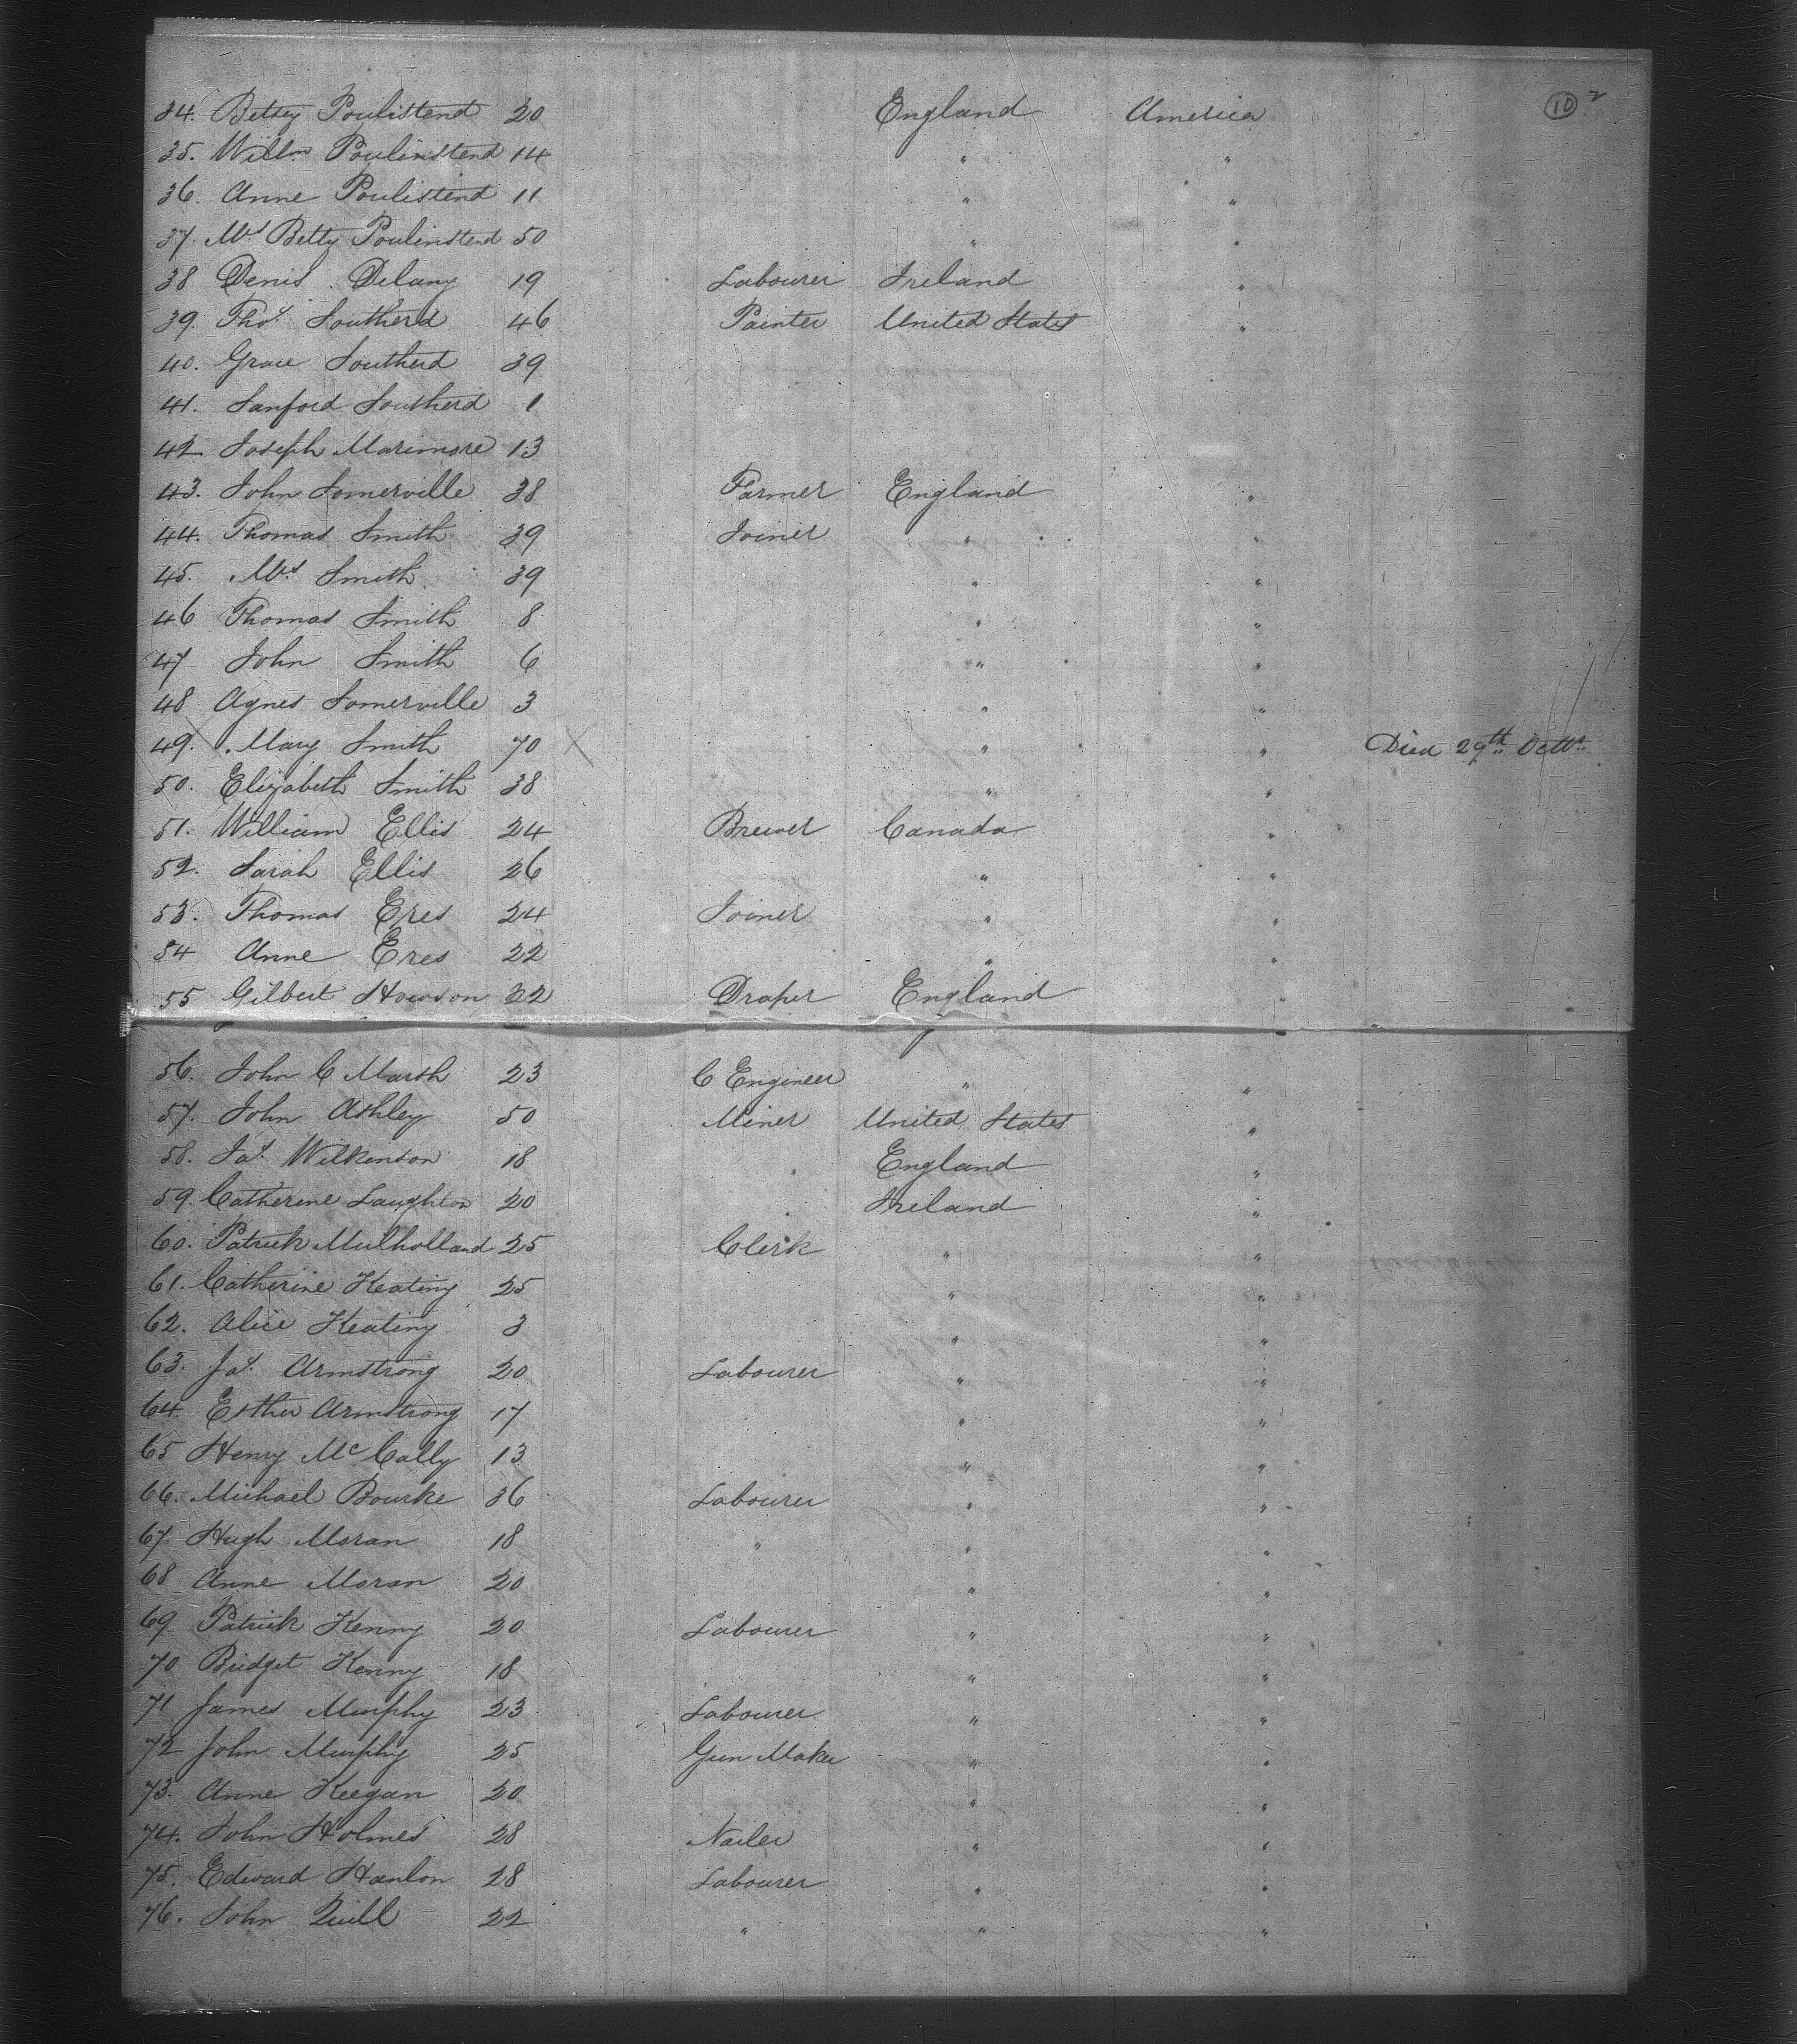 10 2
34. Betsey Poulistend 20 England America
35. Willm Poulinstend 14 " "
36. Anne Poulistend 11 " "
37. Mrs Betty Poulinstend 50 " "
38 Denis Delany 19 Labourer Ireland "
39. Thos Southerd 46 Painter United States "
40. Grace Southerd 39
41. Sanford Southerd 1
42 Joseph Marimore 13
43. John Somerville 38 Farmer England "
44. Thomas Smith 39 Joiner " "
45. Mrs Smith 39 " "
46 Thomas Smith 8 " "
47 John Smith 6 " "
48 Agnes Somerville 3 " "
49. Mary Smith 70 X " " Died 29th Octr
50. Elizabeth Smith 38 " "
51. William Ellis 24 Brewer Canada "
52. Sarah Ellis 26 " "
53. Thomas Eres 24 Joiner " "
54 Anne Eres 22 " "
55 Gilbert Howson 22 Draper England "
56. John C Marsh 23 C Engineer " "
57. John Ashley 50 Miner United States "
58. Jas Wilkenson 18 England "
59. Catherine Laughton 20 Ireland "
60. Patrick Mulholland 25 Clerk " "
61. Catherine Keating 25 " "
62. Alice Keating 3 " "
63. Jas. Armstrong 20 Labourer " "
64. Esther Armstrong 17 " "
65 Henry Mc Cally 13 " "
66. Michael Bourke 36 Labourer " "
67. Hugh Moran 18 " " "
68 Anne Moran 20 " "
69 Patrick Kenny 20 Labourer " "
70 Bridget Kenny 18 " "
71 James Murphy 23 Labourer " "
72 John Murphy 25 Gun Maker " "
73. Anne Keegan 20 " "
74. John Holmes 28 Nailer " "
75. Edward Hanlon 28 Labourer " "
76. John Quill 22 " " "